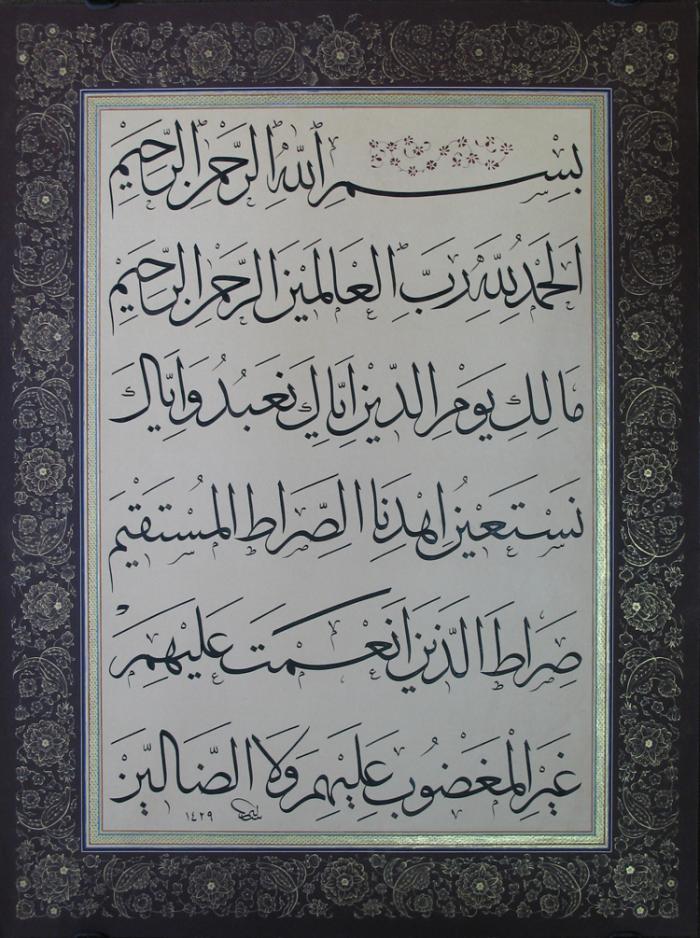 بِسْمِ اللّٰهِ الرَّحْمٰنِ الرَّحِيْمِ
اَلْحَمْدُ لِلّٰهِ رَبِّ الْعَالَمِيْنَ الرَّحْمٰنِ الرَّحِيْمِ
مَالِكِ يَوْمِ الدِّيْنِ اِيَّاكَ نَعْبُدُ وَاِيَّاكَ
نَسْتَعِيْنُ اِهْدِنَا الصِّرَاطَ الْمُسْتَقِيْمَ
صِرَاطَ الَّذِيْنَ اَنْعَمْتَ عَلَيْهِمْ
غَيْرِ الْمَغْضُوْبِ عَلَيْهِمْ وَلَا الضَّالِّيْنَ
١٤٢٩